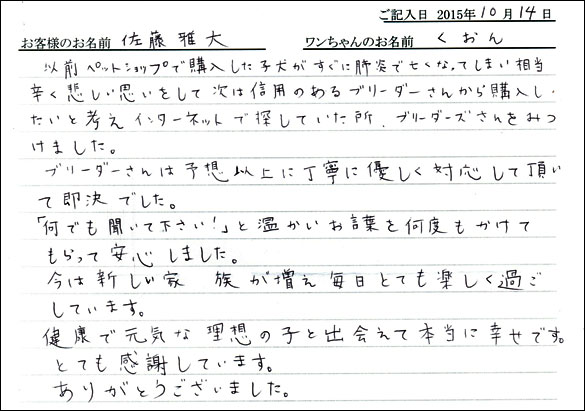 ご記入日 2015年10月14日
お客様のお名前 佐藤雅大 ワンちゃんのお名前 くおん
以前ペットショップで購入した子犬がすぐに肺炎で亡くなってしまい相当
辛く悲しい思いをして次は信用のあるブリーダーさんから購入し
たいと考えインターネットで探していた所、ブリーダーズさんをみつ
けました。
ブリーダーさんは予想以上に丁寧に優しく対応して頂い
て即決でした。
「何でも聞いて下さい!」と温かいお言葉を何度もかけて
もらって安心しました。
今は新しい家 族が増え毎日とても楽しく過ご
しています。
健康で元気な理想の子と出会えて本当に幸せです。
とても感謝しています。
ありがとうございました。